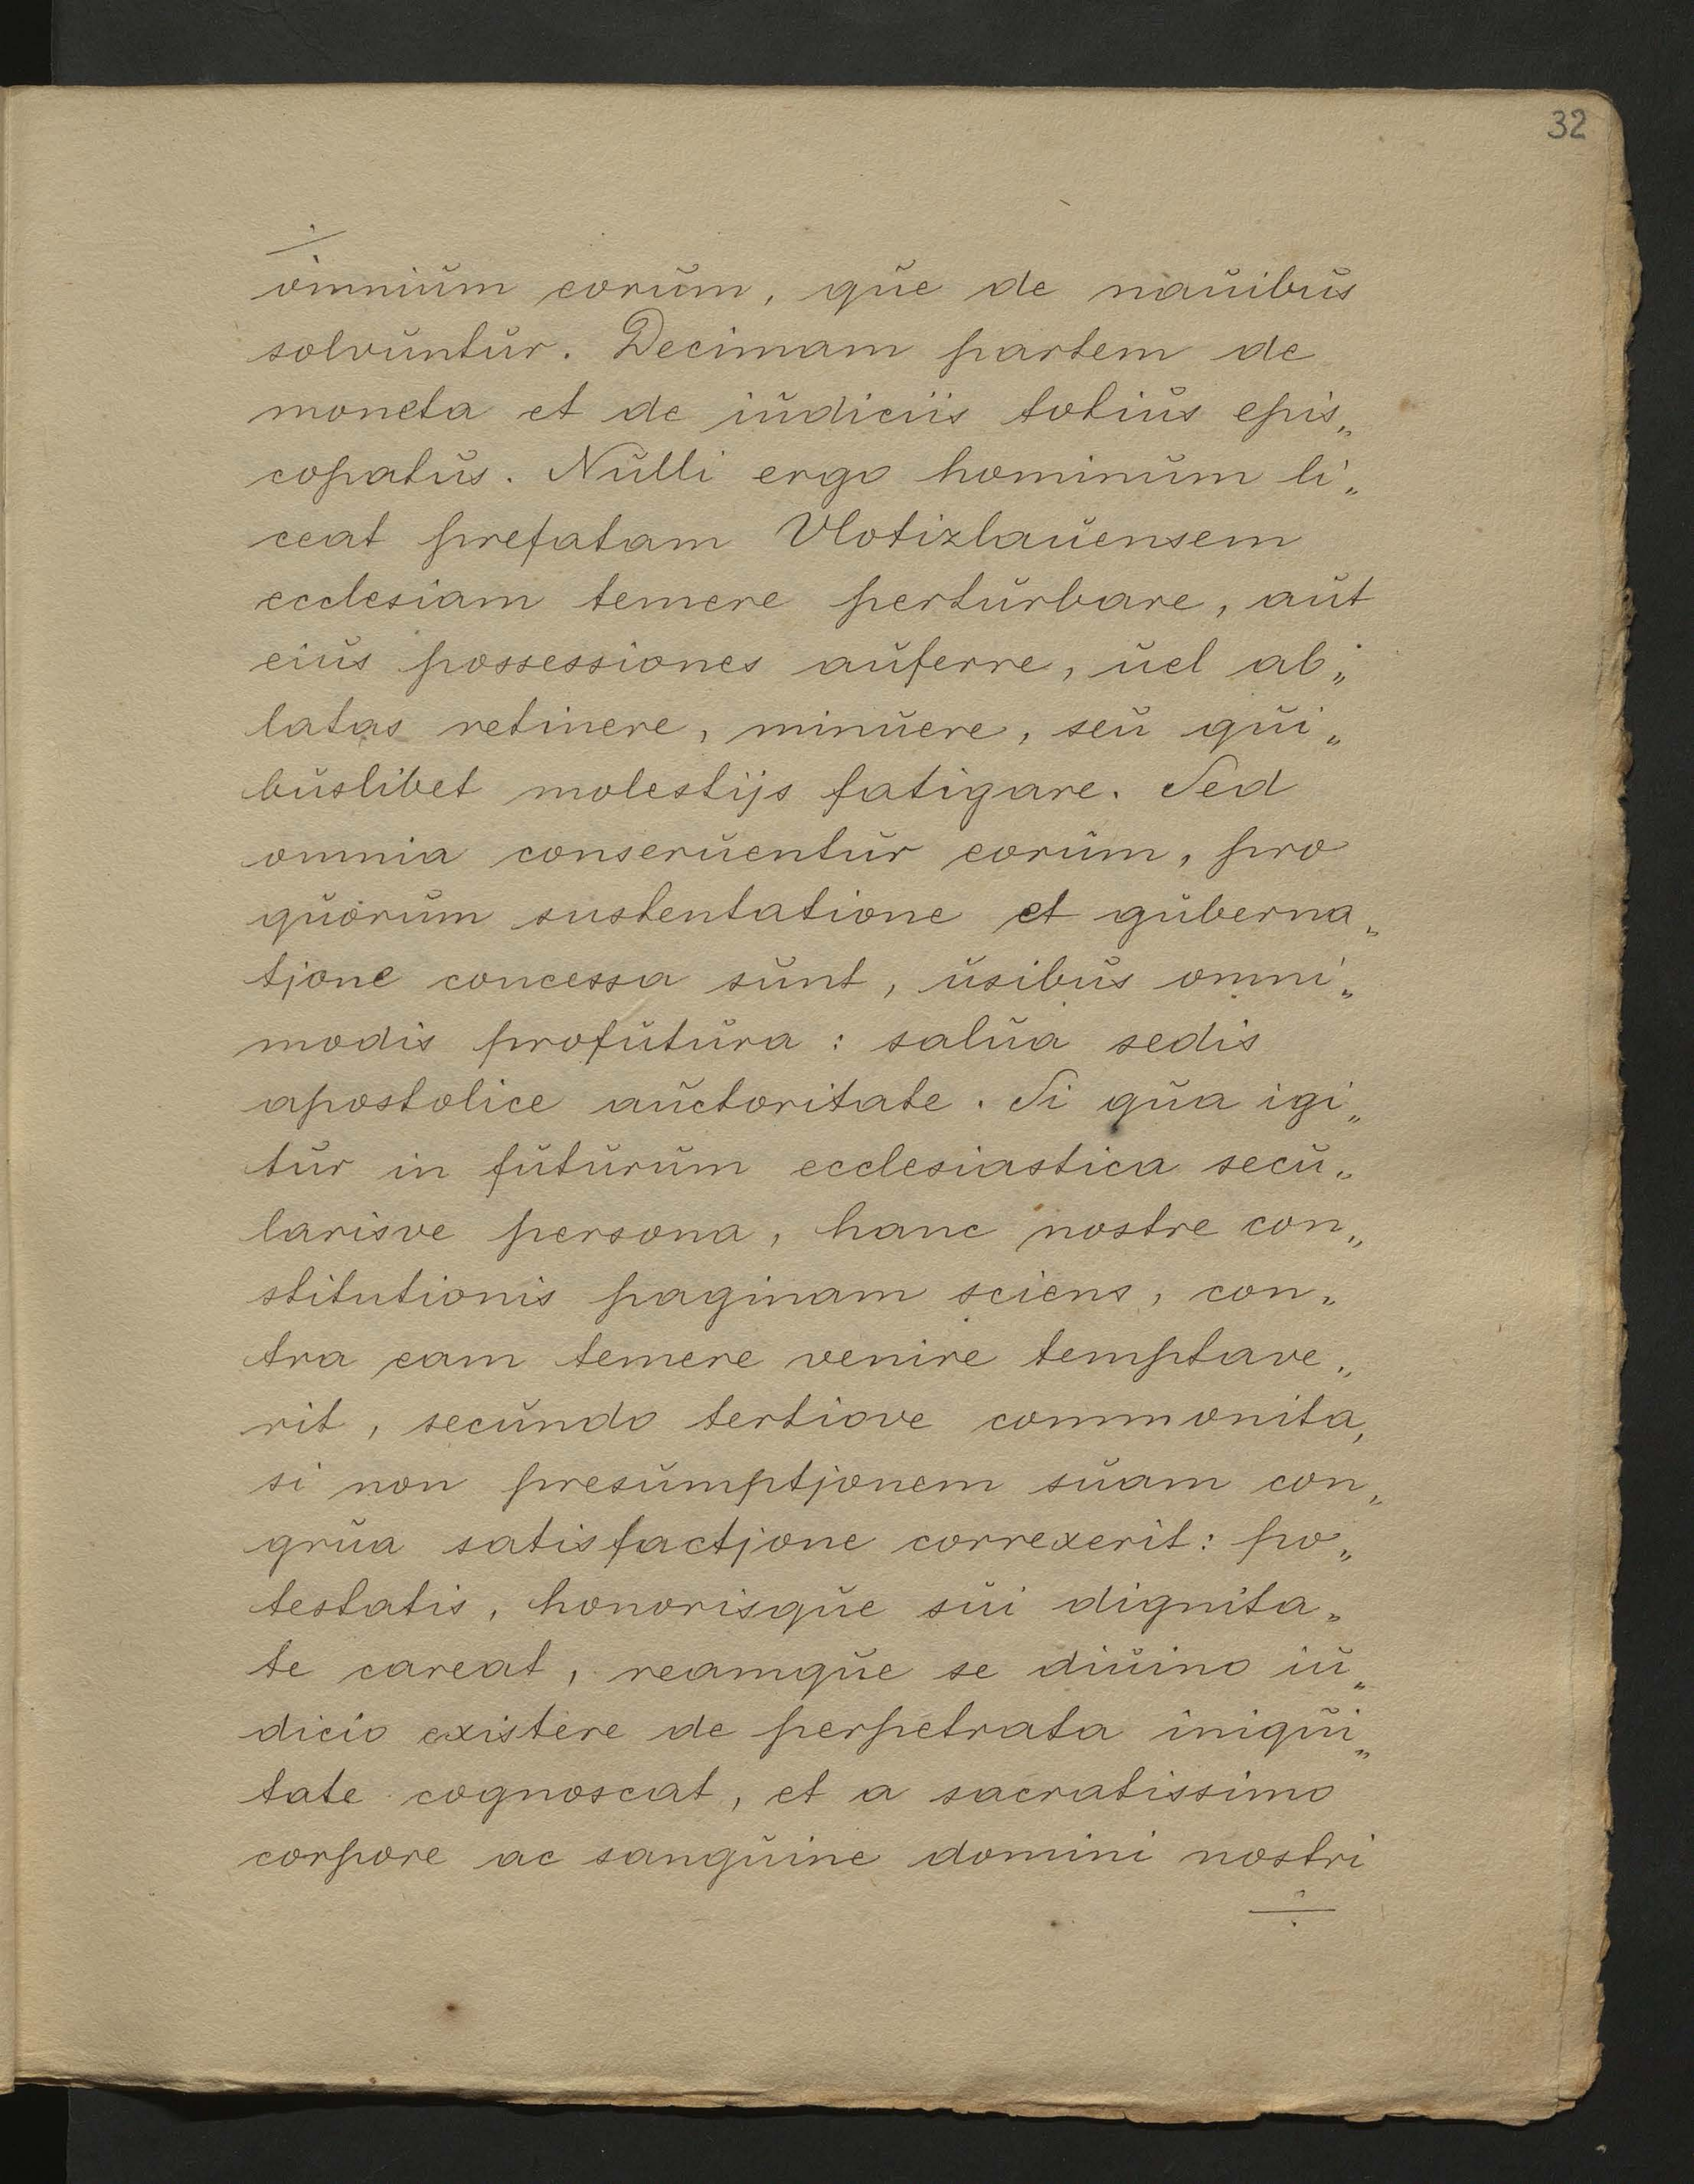 32
÷
omnium eorum, que de nauibus
solvuntur. Decimam partem de
moneta et de iudiciis totius epis„
copatus. Nulli ergo hominum li„
ceat prefatam Vlotizlauensem
ecclesiam temere perturbare, aut
eius possessiones auferre, uel ab„
latas retinere, minuere, seu qui„
buslibet molestijs fatigare. Sed
omnia conseruentur eorum, pro
quorum sustentatione et guberna„
tjone concessa sunt, usibus omni„
modis profutura: salua sedis
apostolice auctoritate. Si qua igi„
tur in futurum ecclesiastica secu„
larisve persona, hanc nostre con„
stitutionis paginam sciens, con„
tra eam temere venire temptave„
rit, secundo tertiove commonita,
si non presumptjonem suam con„
grua satisfactjone correxerit: po„
testatis, honorisque sui dignita„
te careat, reamque se diuino iu„
dicio existere de perpetrata iniqui„
tate cognoscat, et a sacratissimo
corpore ac sanguine domini nostri
÷